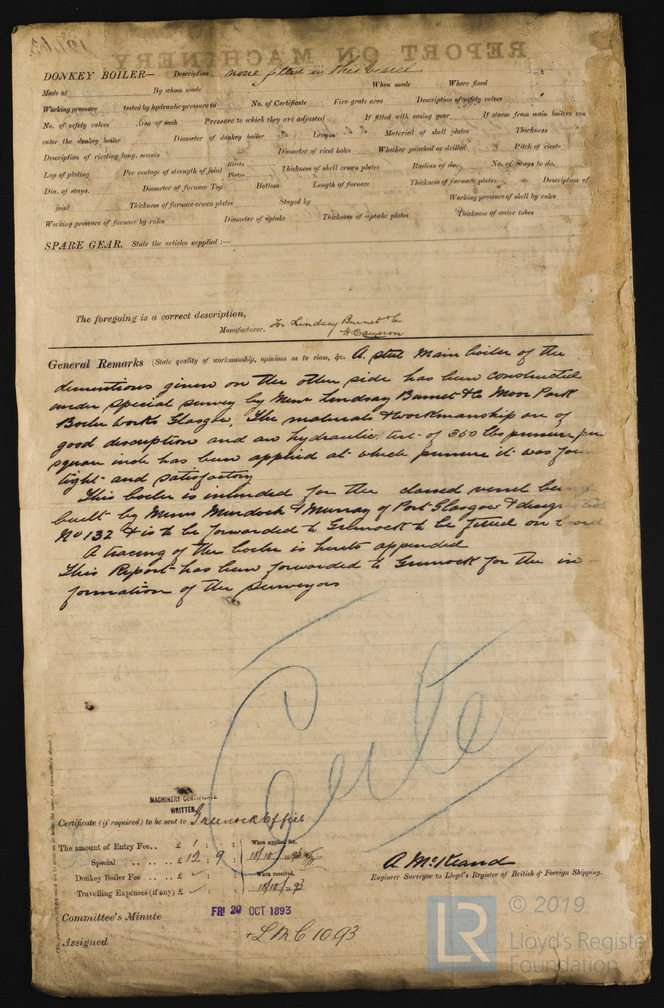 REPORT ON MACHINERY
DONKEY BOILER— Description none fitted in this vessel
Made at By whom made When made Where fixed
Working pressure tested by hydraulic pressure to No. of Certificate Fire grate area Description of safety valves
No. of safety valves Area of each Pressure to which they are adjusted If fitted with easing gear If steam from main boilers can
enter the donkey boiler Diameter of donkey boiler Length Material of shell plates Thickness
Description of riveting long. seams Diameter of rivet holes Whether punched or drilled Pitch of rivets
Lap of plating Per centage of strength of joint Rivets Plates Thickness of shell crown plates Radius of do. No. of Stays to do.
Dia. of stays. Diameter of furnace Top Bottom Length of furnace Thickness of furnace plates Description of
joint Thickness of furnace crown plates Stayed by Working pressure of shell by rules
Working pressure of furnace by rules Diameter of uptake Thickness of uptake plates Thickness of water tubes
SPARE GEAR. State the articles supplied:—
The foregoing is a correct description,
Manufacturer. For Lindsay Burnet & Co
H Cameron
General Remarks (State quality of workmanship, opinions as to class, &c. A steel Main boiler of the
dimentions given on the other side has been constructed
under special survey by Messrs Lindsay Burnet & Co Moor Park
Boiler Works Glasgow. The materials & workmanship are of
good discription and an hydraulic test of 350 lbs pressure per
square inch has been applied at which pressure it was foun
tight and satisfactory
This boiler is intended for the classed vessel being
built by Messrs Murdoch & Murray of Port Glasgow &
No 132 & is to be forwarded to Greenock to be fitted on board
A tracing of the boiler is hereto appended
This Report has been forwarded to Greenock for the in-
formation of the Surveyors
MACHINERY CERTIFICATE
WRITTEN
Certificate (if required) to be sent to Greenock Office
The amount of Entry Fee.. £ 1 : : When applied for,
Special .. .. .. £ 12 : 9 : 18/10/1893
Donkey Boiler Fee .. .. £ : : When received,
Travelling Expenses (if any) £ : : 18/10/1893
A. McKeand
Engineer Surveyor to Lloyd's Register of British & Foreign Shipping.
Committee's Minute FRI 20 OCT 1893
Assigned +LMC 10.93
LR © 2019
Lloyd's Register
Foundation